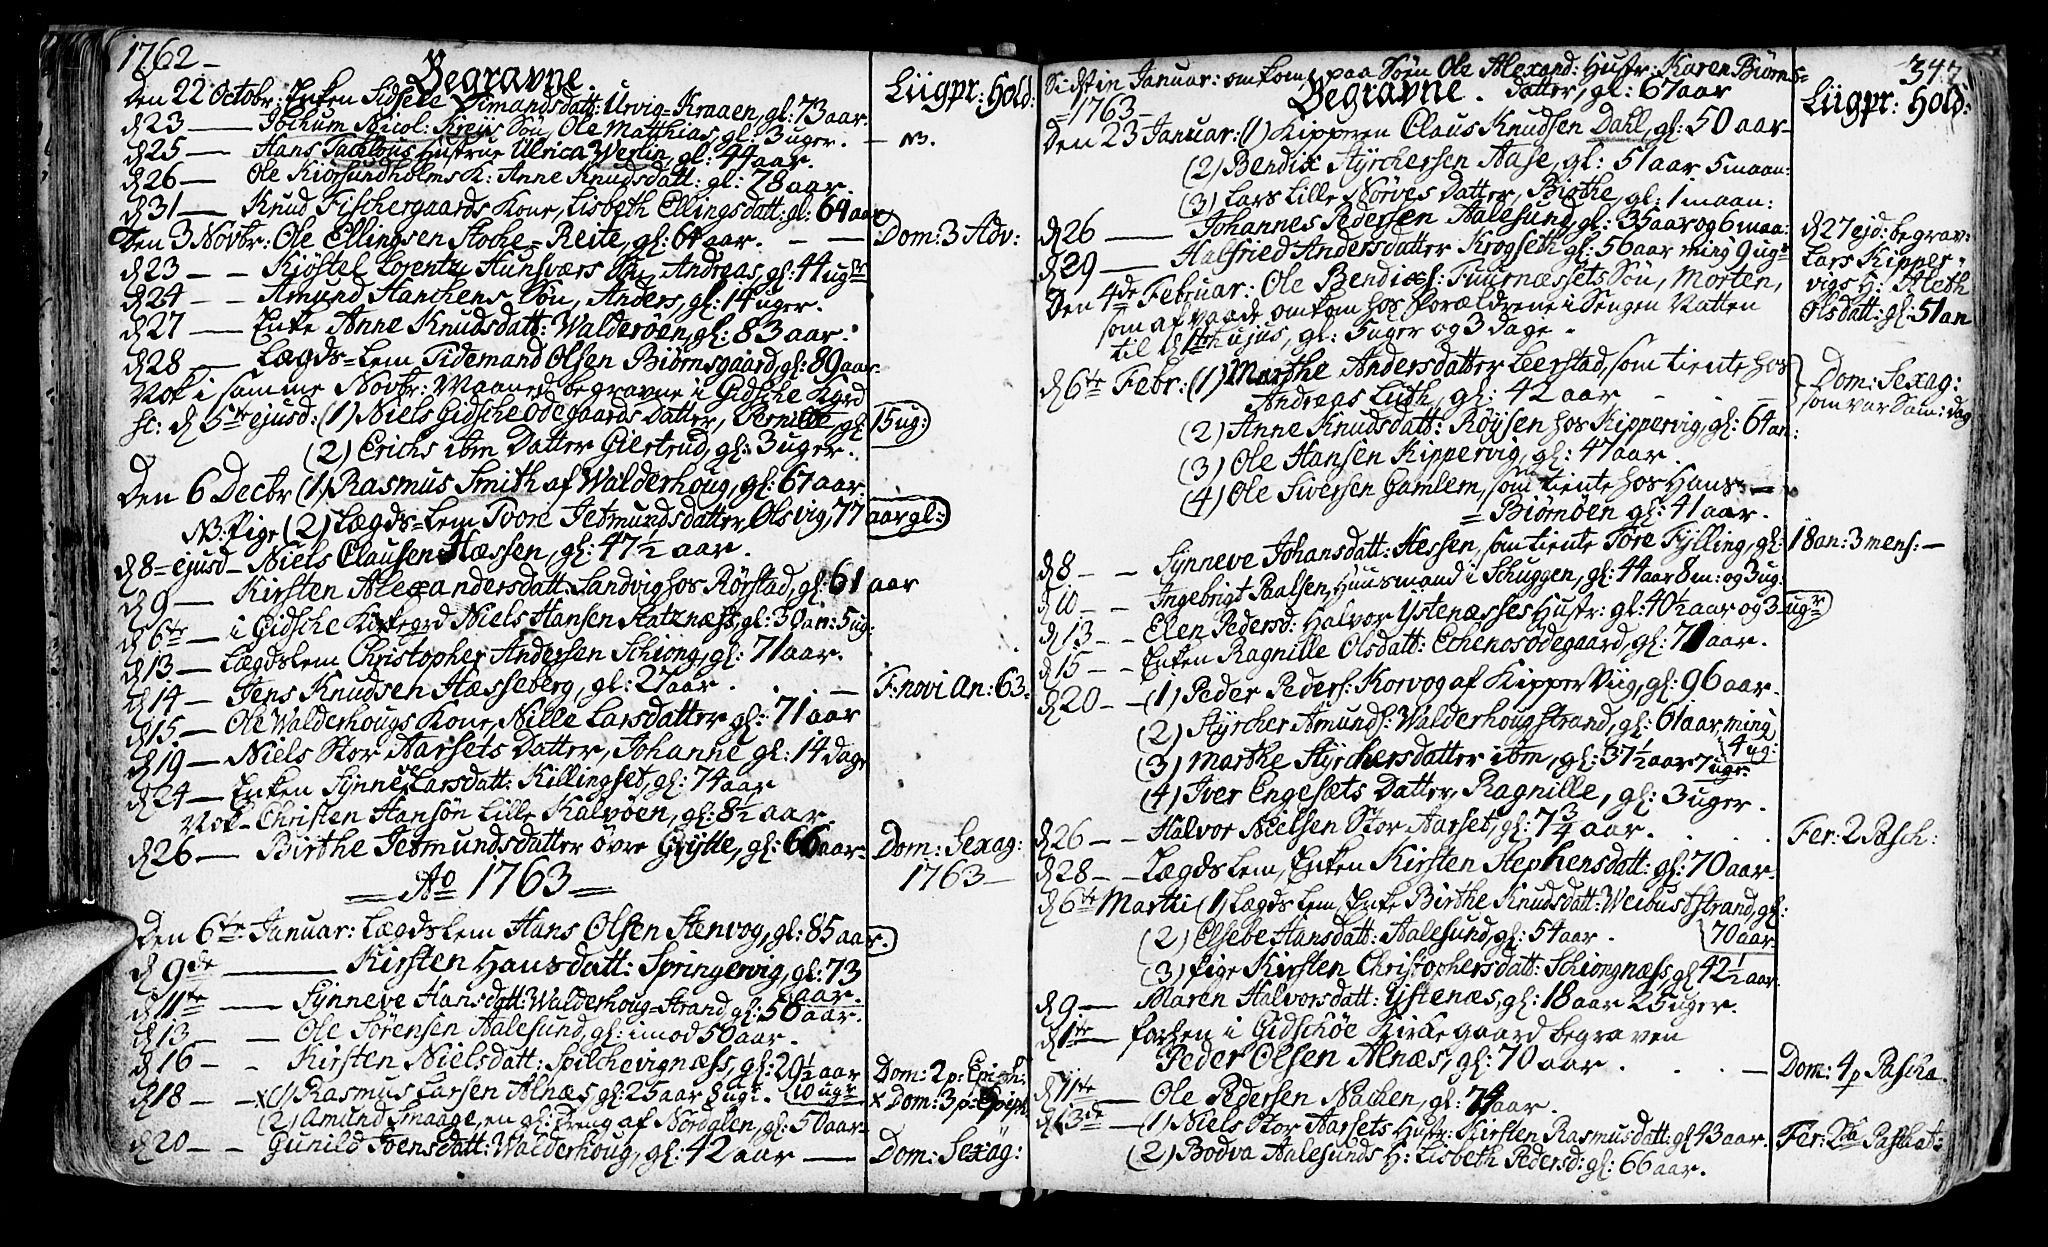 1762 –
Begravne
Liigpr: Hold:
Den 22 Octobr: Enken Sidsele Simandsdatt: Urvig=Kraaen, gl: 73 aar.
d 23 — Jochum Nicol: Kreiis Søn, Ole Matthias, gl: 3 uger. — N3.
d 25 — Hans Jacobus Hustrue Ulrica Werlin, gl: 44 aar.
d 26 — Ole Kiørsundholms K: Anne Knudsdatt: gl: 78 aar.
d 31 — Knud Fischergaards Kone, Lisbeth Ellingsdatt: gl: 64 aar
Den 3 Novbr: Ole Ellingsen Stocke=Reite, gl: 61 aar. — — Dom: 3 Adv:
d 23 – – Kiøstel Lorentz Hunsværs Søn, Andreas, gl: 44 ugr
d 24 – – Amund Hanckens Søn, Anders, gl: 14 uger.
d 27 — Enke Anne Knudsdatt: Walderøen, gl: 83 aar.
d 28 — Lægds=Lem Tidemand Olsen Biørnsgaard, gl: 89 aar.
Nok i samme Novbr: Maaned begravne i Gidsche Kgrd
st: d 5te ejusd: (1) Niels Gidsche Ødegaards Datter, Pernille, gl: 15 ug:
(2) Erichs ibm Datter Giertrud, gl: 3 uger.
Den 6 Decbr (1) Rasmus Smith af Walderhoug, gl: 67 aar.
NB: Pige (2) Lægds=Lem Tvore Jetmundsdatter Olsvig, 77 aar gl:
d 8= ejusd – Niels Clausen Hæssen, gl: 47½ aar.
d 9 — Kirsten Alexandersdatt: Sandvig hos Rørstad, gl: 61 aar
d 6te — i Gidsche Kirkegrd Niels Hansen Statznæss, gl: 30 an: 5 ug:
d 13 — Lægdslem Christopher Andersen Schiong, gl: 71 aar.
d 14 — Jens Knudsen Hæsseberg, gl: 27 aar. — F: novi An: 63.
d 15 — Ole Walderhougs Kone, Nille Larsdatter gl: 71 aar
d 19 — Niels Stor Aarsets Datter, Johanne gl: 14 dage
d 24 — Enken Synneve Larsdatt: Killingset, gl: 74 aar
Nok – Christen Hansøn Lille Kalvøen, gl: 8½ aar.
d 26 — Birthe Jetmundsdatter øvre Grytte, gl: 66 aar – Dom: Sexag:
1763 –
= Ao 1763 =
Den 6te Januar: Lægdslem Hans Olsen Stenvog, gl: 85 aar.
d 9de — Kirsten Hansdatt: Springervig, gl: 73
aar.
d 11te — Synneve Hansdatt: Walderhoug=Strand, gl: 56 aar.
d 13 — Ole Sørensen Aalesund, gl: imod 50 aar.
d 16 – – Kirsten Nielsdatt: Spilchevignæss, gl: 20½ aar
10 ugr Dom: 2 p: Epiph:
d 18 – – x (1) Rasmus Larsen Alnæs, gl: 25 aar 8 ugr. x Dom: 3 p: Epiph:
(2) Amund Smaage, en gl: Dreng af Nordglen, gl: 50 aar –
d 20 – – Gunild Joensdatt: Walderhoug, gl: 42 aar — Dom: Sexag:
347.
Sidst in Januar: omkom paa Søen Ole Alexand: Hustr: Karen Biørns=
datter, gl: 67 aar
Begravne.
Liigpr: Hold:
=1763–
Den 23 Januar: (1) Kipperen Claus Knudsen Dahl, gl: 50 aar –
(2) Bendix Styrchersen Aase, gl: 51 aar 5 maan:
(3) Lars Lille Nørves Datter, Birthe, gl: 1 maan:
d 26 — Johannes Pedersen Aalesund, gl: 35 aar og 6 maa:
d 27 ejd: begrav:
Lars Kipper=
vigs H: Aleth
Olsdatt: gl: 51 an
d 29 — Halfried Andersdatter Krogseth gl: 56 aar ming 9 ugr
Den 4de Februar: Ole Bendixs: Fuurnæssets Søn, Morten,
som af vaade omkom hos Forældrene i Sengen Natten
til d 1ste hujus, gl: 5 uger og 3 dage.
d 6te Febr: (1) Marthe Andersdatter Leerstad, som tiente hos
Andreas Luth, gl: 42 aar — Dom: Sexag:
som var Sam: dag
(2) Anne Knudsdatt: Røysen hos Kippervig, gl: 64 an:
(3) Ole Hansen Kippervig, gl: 47 aar.
(4) Ole Siversen Gamlem, som tiente hos Hans
= Biørnøen gl: 41 aar.
d 8 – – Synneve Johansdatt: Hessen, som tiente Tore Fylling, gl: 18 an: 3 mens: –
d 10 – – Ingebrigt Paalsen, Huusmand i Schuggen, gl: 44 aar 8 m: og 3 ug:
d 13 – – Elen Pedersd: Halvor Ystenæsses Hustr: gl: 40½ aar og 3 ugr
d 15 – – Enken Ragnille Olsdatt: Echenosødegaard, gl: 71 aar.
d 20 – – (1) Peder Peders: Korvog af Kipper Viig, gl: 96 aar.
(2) Styrcher Amunds: Walderhoug strand, gl: 61 aar, ming
4 ug:
(3) Marthe Styrchersdatter ibm, gl: 37½ aar 7 ugr.
(4) Iver Engesæts Datter, Ragnille, gl: 3 uger.
d 26 – – Halvor Nielsen Stor Aarset, gl: 7¾ aar. Fer: 2 Pasch:
d 28 – – Lægdslem, Enken Kirsten Stephensdatt: gl: 70 aar.
d 6te Martii (1) Lægdslem, Enke Birthe Knudsdatt: Weibust strand, gl:
70 aar.
(2) Elsebe Hansdatt: Aalesund, gl: 54 aar.
(3) Pige Kirsten Christophersdatt: Schiongnæss, gl 42½ aar.
d 9 — Maren Halvorsdatt: Ystenæs, gl: 18 aar 25 uger.
d 1te — forhen i Gidschöe Kirke gaard begraven
Peder Olsen Alnæs, gl: 70 aar. — Dom: 4 p Pascha
d 11te — Ole Pedersen Nachen, gl: 74 aar.
d 13de — (1) Niels Stor Aarsets Hustr: Kirsten Rasmusdatt: gl 43 aar. Fer: 2da Paschat:
(2) Bodva Aalesunds H: Lisbeth Pedersd: gl: 66 aar.